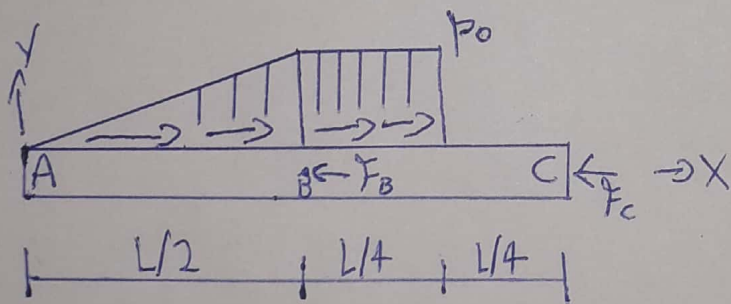 Y
p₀
A
B
F_B
C
F_C
X
L/2
L/4
L/4